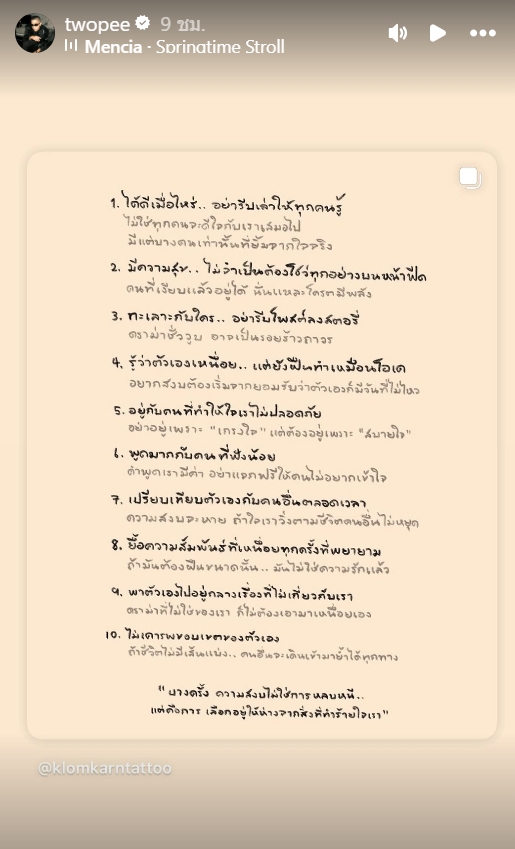 twopee 9 ชม.
Mencia · Springtime Stroll
1. ได้ดีเมื่อไหร่.. อย่ารีบเล่าให้ทุกคนรู้
ไม่ใช่ทุกคนจะดีใจกับเราเสมอไป
มีแต่บางคนเท่านั้นที่ยิ้มจากใจจริง
2. มีความสุข.. ไม่จำเป็นต้องโชว์ทุกอย่างบนหน้าฟีด
คนที่เงียบแล้วอยู่ได้ นั่นแหละโคตรมีพลัง
3. ทะเลาะกับใคร.. อย่ารีบโพสต์ลงสตอรี่
ดราม่าชั่ววูบ อาจเป็นรอยร้าวถาวร
4. รู้ว่าตัวเองเหนื่อย.. แต่ยังฝืนทำเหมือนโอเค
อยากสงบต้องเริ่มจากยอมรับว่าตัวเองก็มีวันที่ไม่ไหว
5. อยู่กับคนที่ทำให้ใจเราไม่ปลอดภัย
อย่าอยู่เพราะ "เกรงใจ" แต่ต้องอยู่เพราะ "สบายใจ"
6. พูดมากกับคนที่ฟังน้อย
คำพูดเรามีค่า อย่าแจกฟรีให้คนไม่อยากเข้าใจ
7. เปรียบเทียบตัวเองกับคนอื่นตลอดเวลา
ความสงบจะหาย ถ้าใจเราวิ่งตามชีวิตคนอื่นไม่หยุด
8. ยื้อความสัมพันธ์ที่เหนื่อยทุกครั้งที่พยายาม
ถ้ามันต้องฝืนขนาดนั้น.. มันไม่ใช่ความรักแล้ว
9. พาตัวเองไปอยู่กลางเรื่องที่ไม่เกี่ยวกับเรา
ดราม่าที่ไม่ใช่ของเรา ก็ไม่ต้องเอามาเหนื่อยเอง
10. ไม่เคารพขอบเขตของตัวเอง
ถ้าชีวิตไม่มีเส้นแบ่ง.. คนอื่นจะเดินเข้ามาย่ำได้ทุกทาง
"บางครั้ง ความสงบไม่ใช่การหลบหนี..
แต่คือการ เลือกอยู่ให้ห่างจากสิ่งที่ทำร้ายใจเรา"
@klomkarntattoo